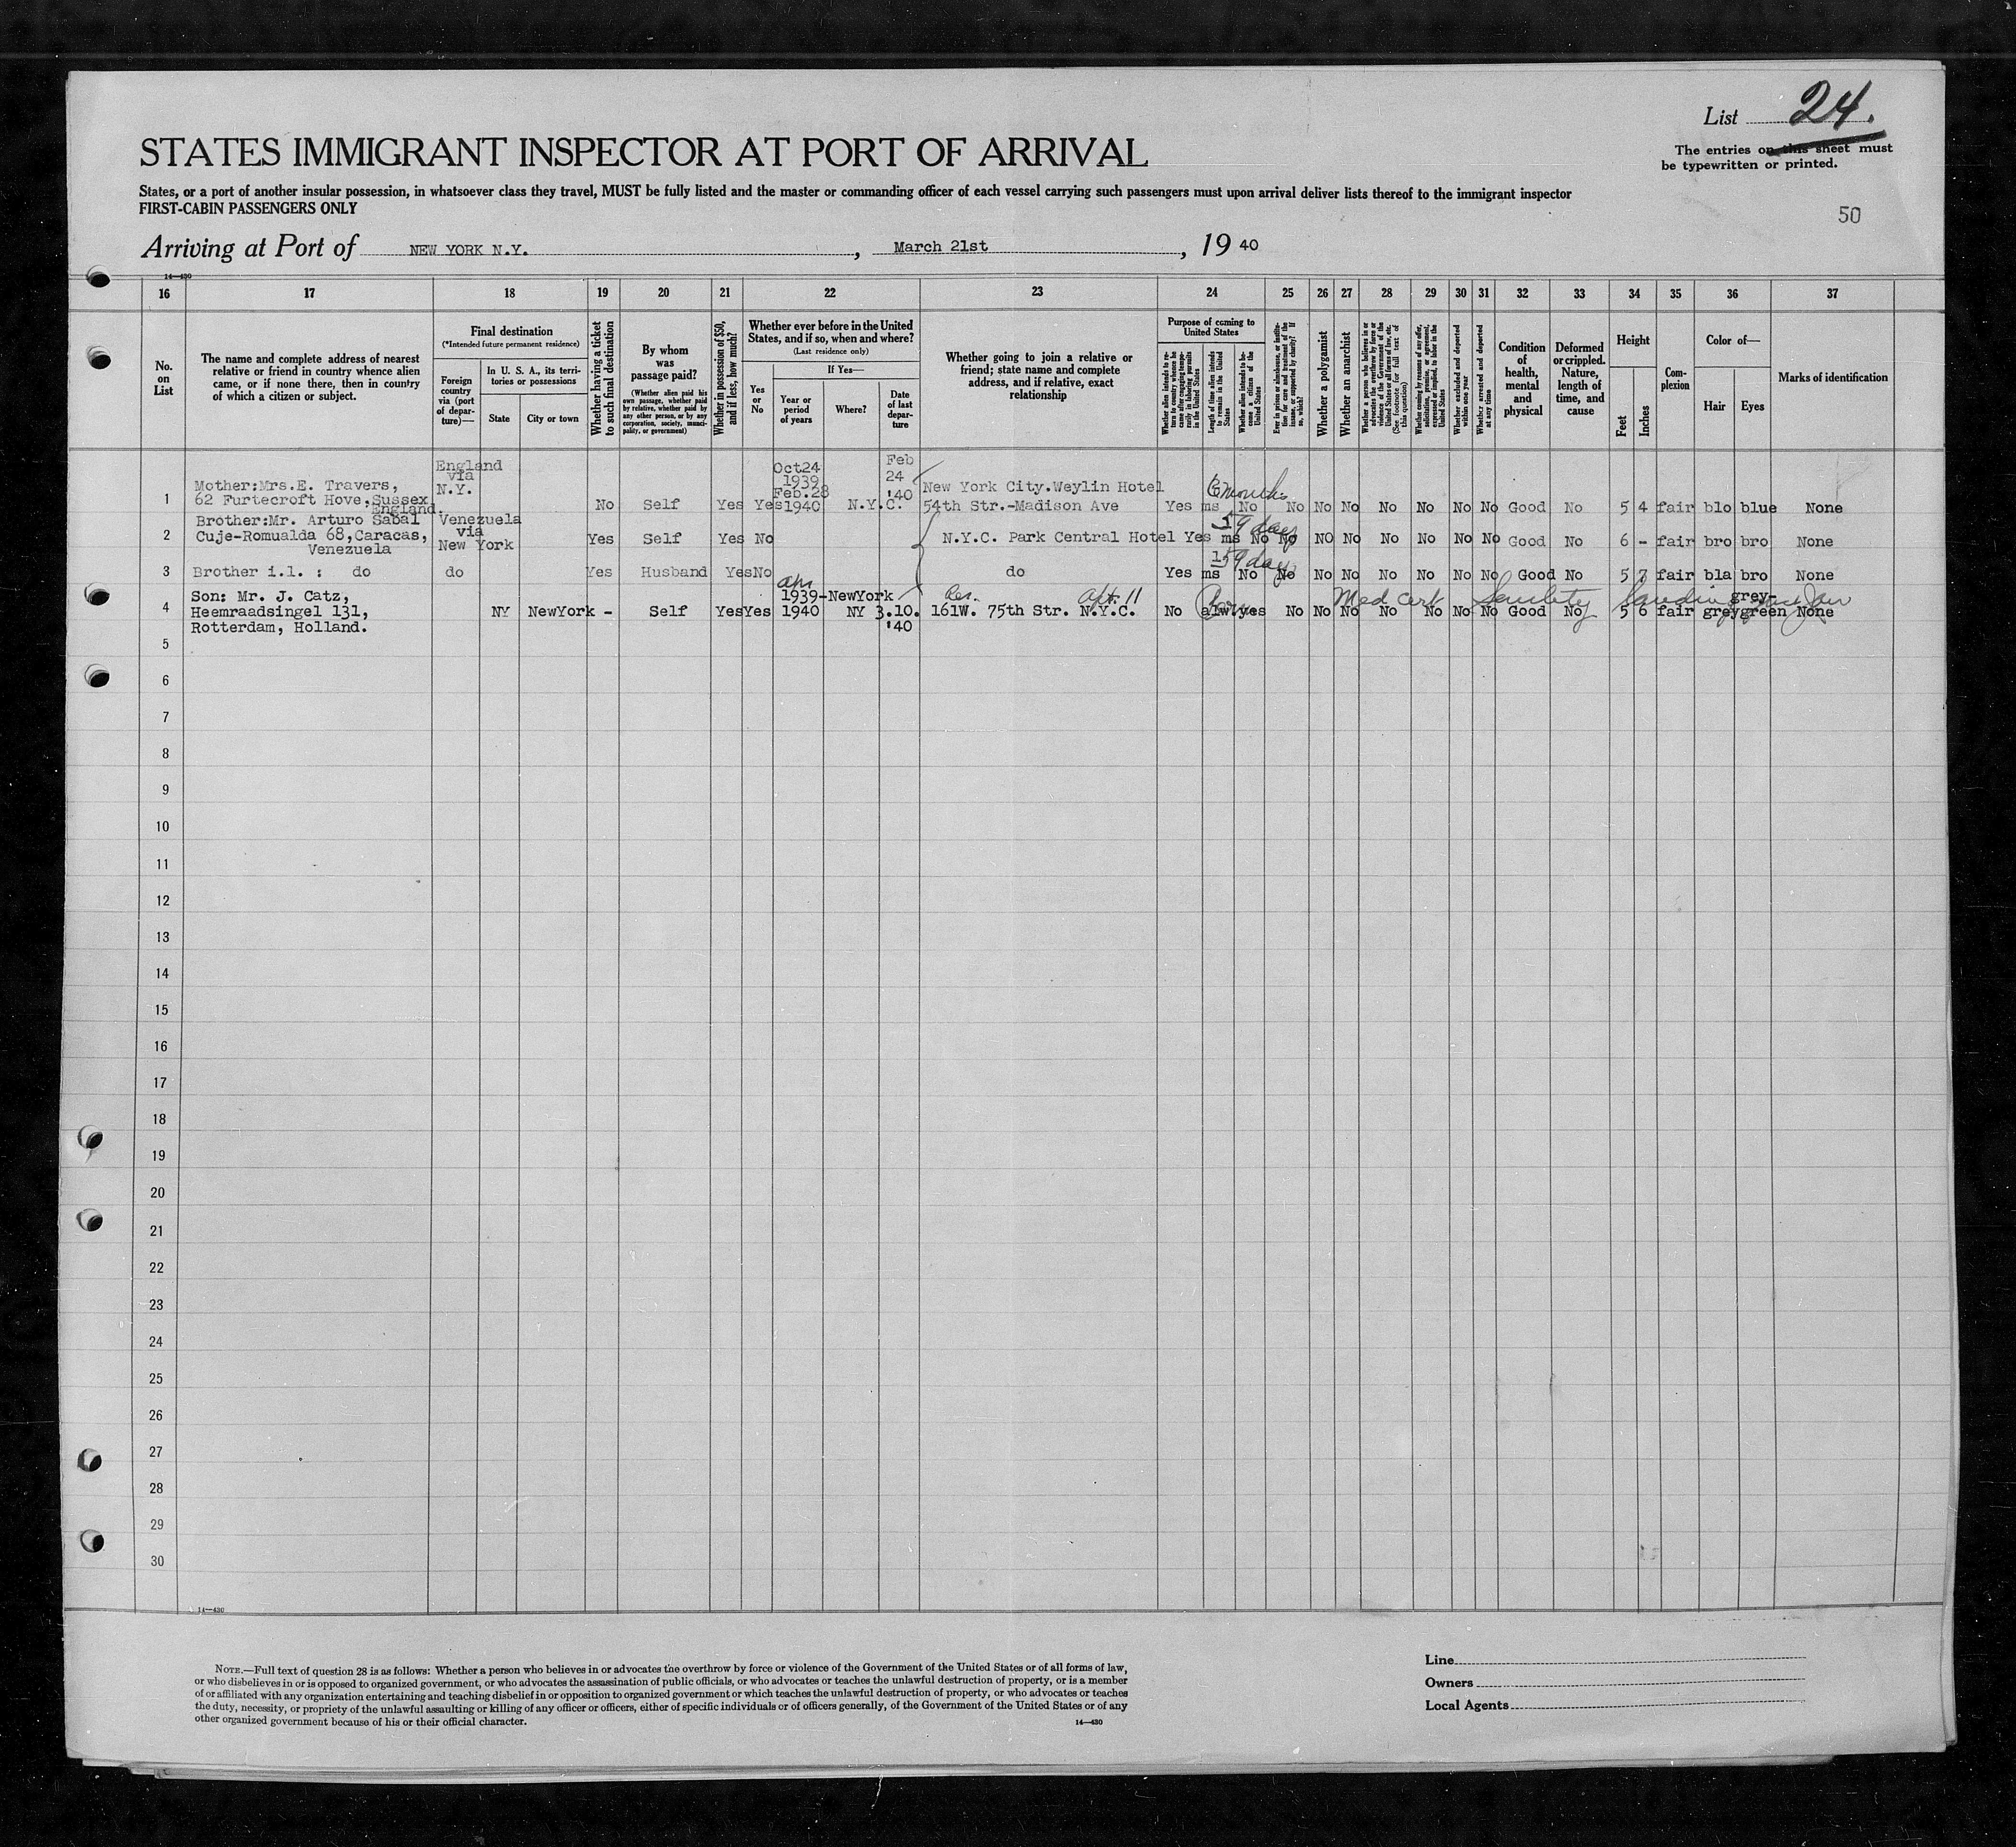 List 24.
The entries on this sheet must
be typewritten or printed.
STATES IMMIGRANT INSPECTOR AT PORT OF ARRIVAL
States, or a port of another insular possession, in whatsoever class they travel, MUST be fully listed and the master or commanding officer of each vessel carrying such passengers must upon arrival deliver lists thereof to the immigrant inspector
FIRST-CABIN PASSENGERS ONLY
50
Arriving at Port of NEW YORK N.Y. , March 21st , 19 40
14—430
16 17 18 19 20 21 22 23 24 25 26 27 28 29 30 31 32 33 34 35 36 37
No. on List
The name and complete address of nearest
relative or friend in country whence alien
came, or if none there, then in country
of which a citizen or subject.
Final destination
(*Intended future permanent residence)
Foreign country via (port of departure)—
In U. S. A., its territories or possessions
State
City or town
Whether having a ticket to such final destination
By whom was passage paid?
(Whether alien paid his own passage, whether paid by relative, whether paid by any other person, or by any corporation, society, municipality, or government)
Whether in possession of $50, and if less, how much?
Whether ever before in the United States, and if so, when and where?
(Last residence only)
Yes or No
If Yes—
Year or period of years
Where?
Date of last departure
Whether going to join a relative or
friend; state name and complete
address, and if relative, exact
relationship
Purpose of coming to United States
Whether alien intends to return to country whence he came after engaging temporarily in laboring pursuits in the United States
Length of time alien intends to remain in the United States
Whether alien intends to become a citizen of the United States
Ever in prison or almshouse, or institution for care and treatment of the insane, or supported by charity? If so, which?
Whether a polygamist
Whether an anarchist
Whether a person who believes in or advocates the overthrow by force or violence of the Government of the United States or all forms of law, etc. (See footnote for full text of this question)
Whether coming by reasons of any offer, solicitation, promise, or agreement, expressed or implied, to labor in the United States
Whether excluded and deported within one year
Whether arrested and deported at any time
Condition of health, mental and physical
Deformed or crippled. Nature, length of time, and cause
Height
Feet
Inches
Complexion
Color of—
Hair
Eyes
Marks of identification
1 Mother:Mrs.E. Travers,
62 Furtecroft Hove,Sussex
England.
England
via
N.Y.
No Self Yes Yes
Oct24
1939
Feb.28
1940
N.Y.C.
Feb
24
'40
New York City.Weylin Hotel
54th Str.-Madison Ave
6 months
Yes ms No No No No No No No No Good No 5 4 fair blo blue None
2 Brother:Mr. Arturo Sabal
Cuje-Romualda 68,Caracas,
Venezuela
Venezuela
via
New York
Yes Self Yes No
N.Y.C. Park Central Hotel
59 days
Yes ms No No NO No No No No No Good No 6 - fair bro bro None
3 Brother i.l. : do do Yes Husband Yes No do
59 days
Yes ms No No No No No No No No Good No 5 7 fair bla bro None
4 Son: Mr. J. Catz,
Heemraadsingel 131,
Rotterdam, Holland.
NY NewYork - Self Yes Yes
1939-NewYork
1940 NY 3.10.
'40
Apt. 11
161W. 75th Str. N.Y.C.
Med Cert Senility
No alw. yes No No No No No No No Good No 5 6 fair grey grey-
green None
5
6
7
8
9
10
11
12
13
14
15
16
17
18
19
20
21
22
23
24
25
26
27
28
29
30
14—430
NOTE.—Full text of question 28 is as follows: Whether a person who believes in or advocates the overthrow by force or violence of the Government of the United States or of all forms of law,
or who disbelieves in or is opposed to organized government, or who advocates the assassination of public officials, or who advocates or teaches the unlawful destruction of property, or is a member
of or affiliated with any organization entertaining and teaching disbelief in or opposition to organized government or which teaches the unlawful destruction of property, or who advocates or teaches
the duty, necessity, or propriety of the unlawful assaulting or killing of any officer or officers, either of specific individuals or of officers generally, of the Government of the United States or of any
other organized government because of his or their official character.
14—430
Line
Owners
Local Agents